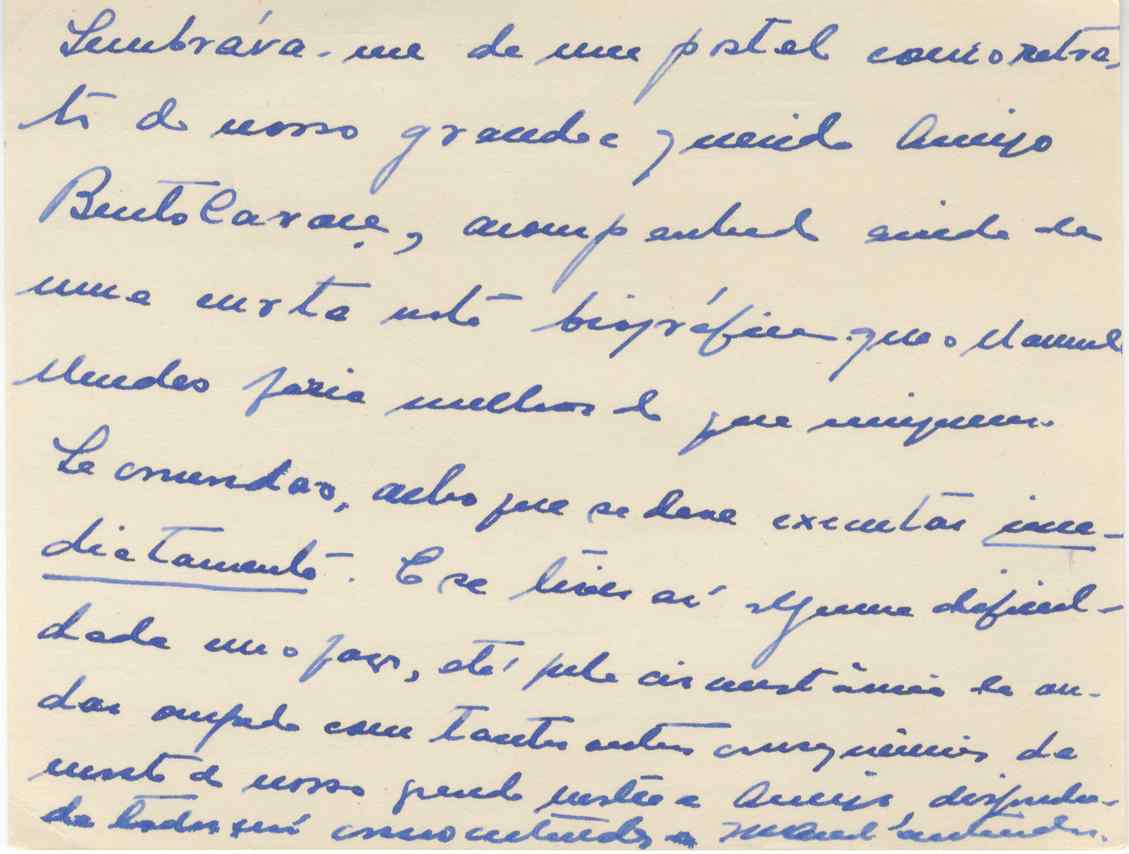 Lembráva-me de um postal com o retra-
to do nosso grande e querido Amigo
Bento Caraça, acompanhado ainda de
uma curta nota biográfica que o Manuel
Mendes faria melhor do que ninguem.
Se concordas, acho que se deve executar ime-
diatamente. E se tives aí alguma dificul-
dade eu o faço, até pela circunstância de an-
dar ocupado com tantas outras consequências da
morte do nosso grande mestre e Amigo,
de todos